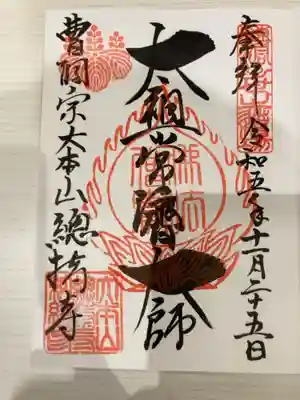 奉拝 令和五年十一月二十五日
太祖常濟大師
曹洞宗大本山總持寺